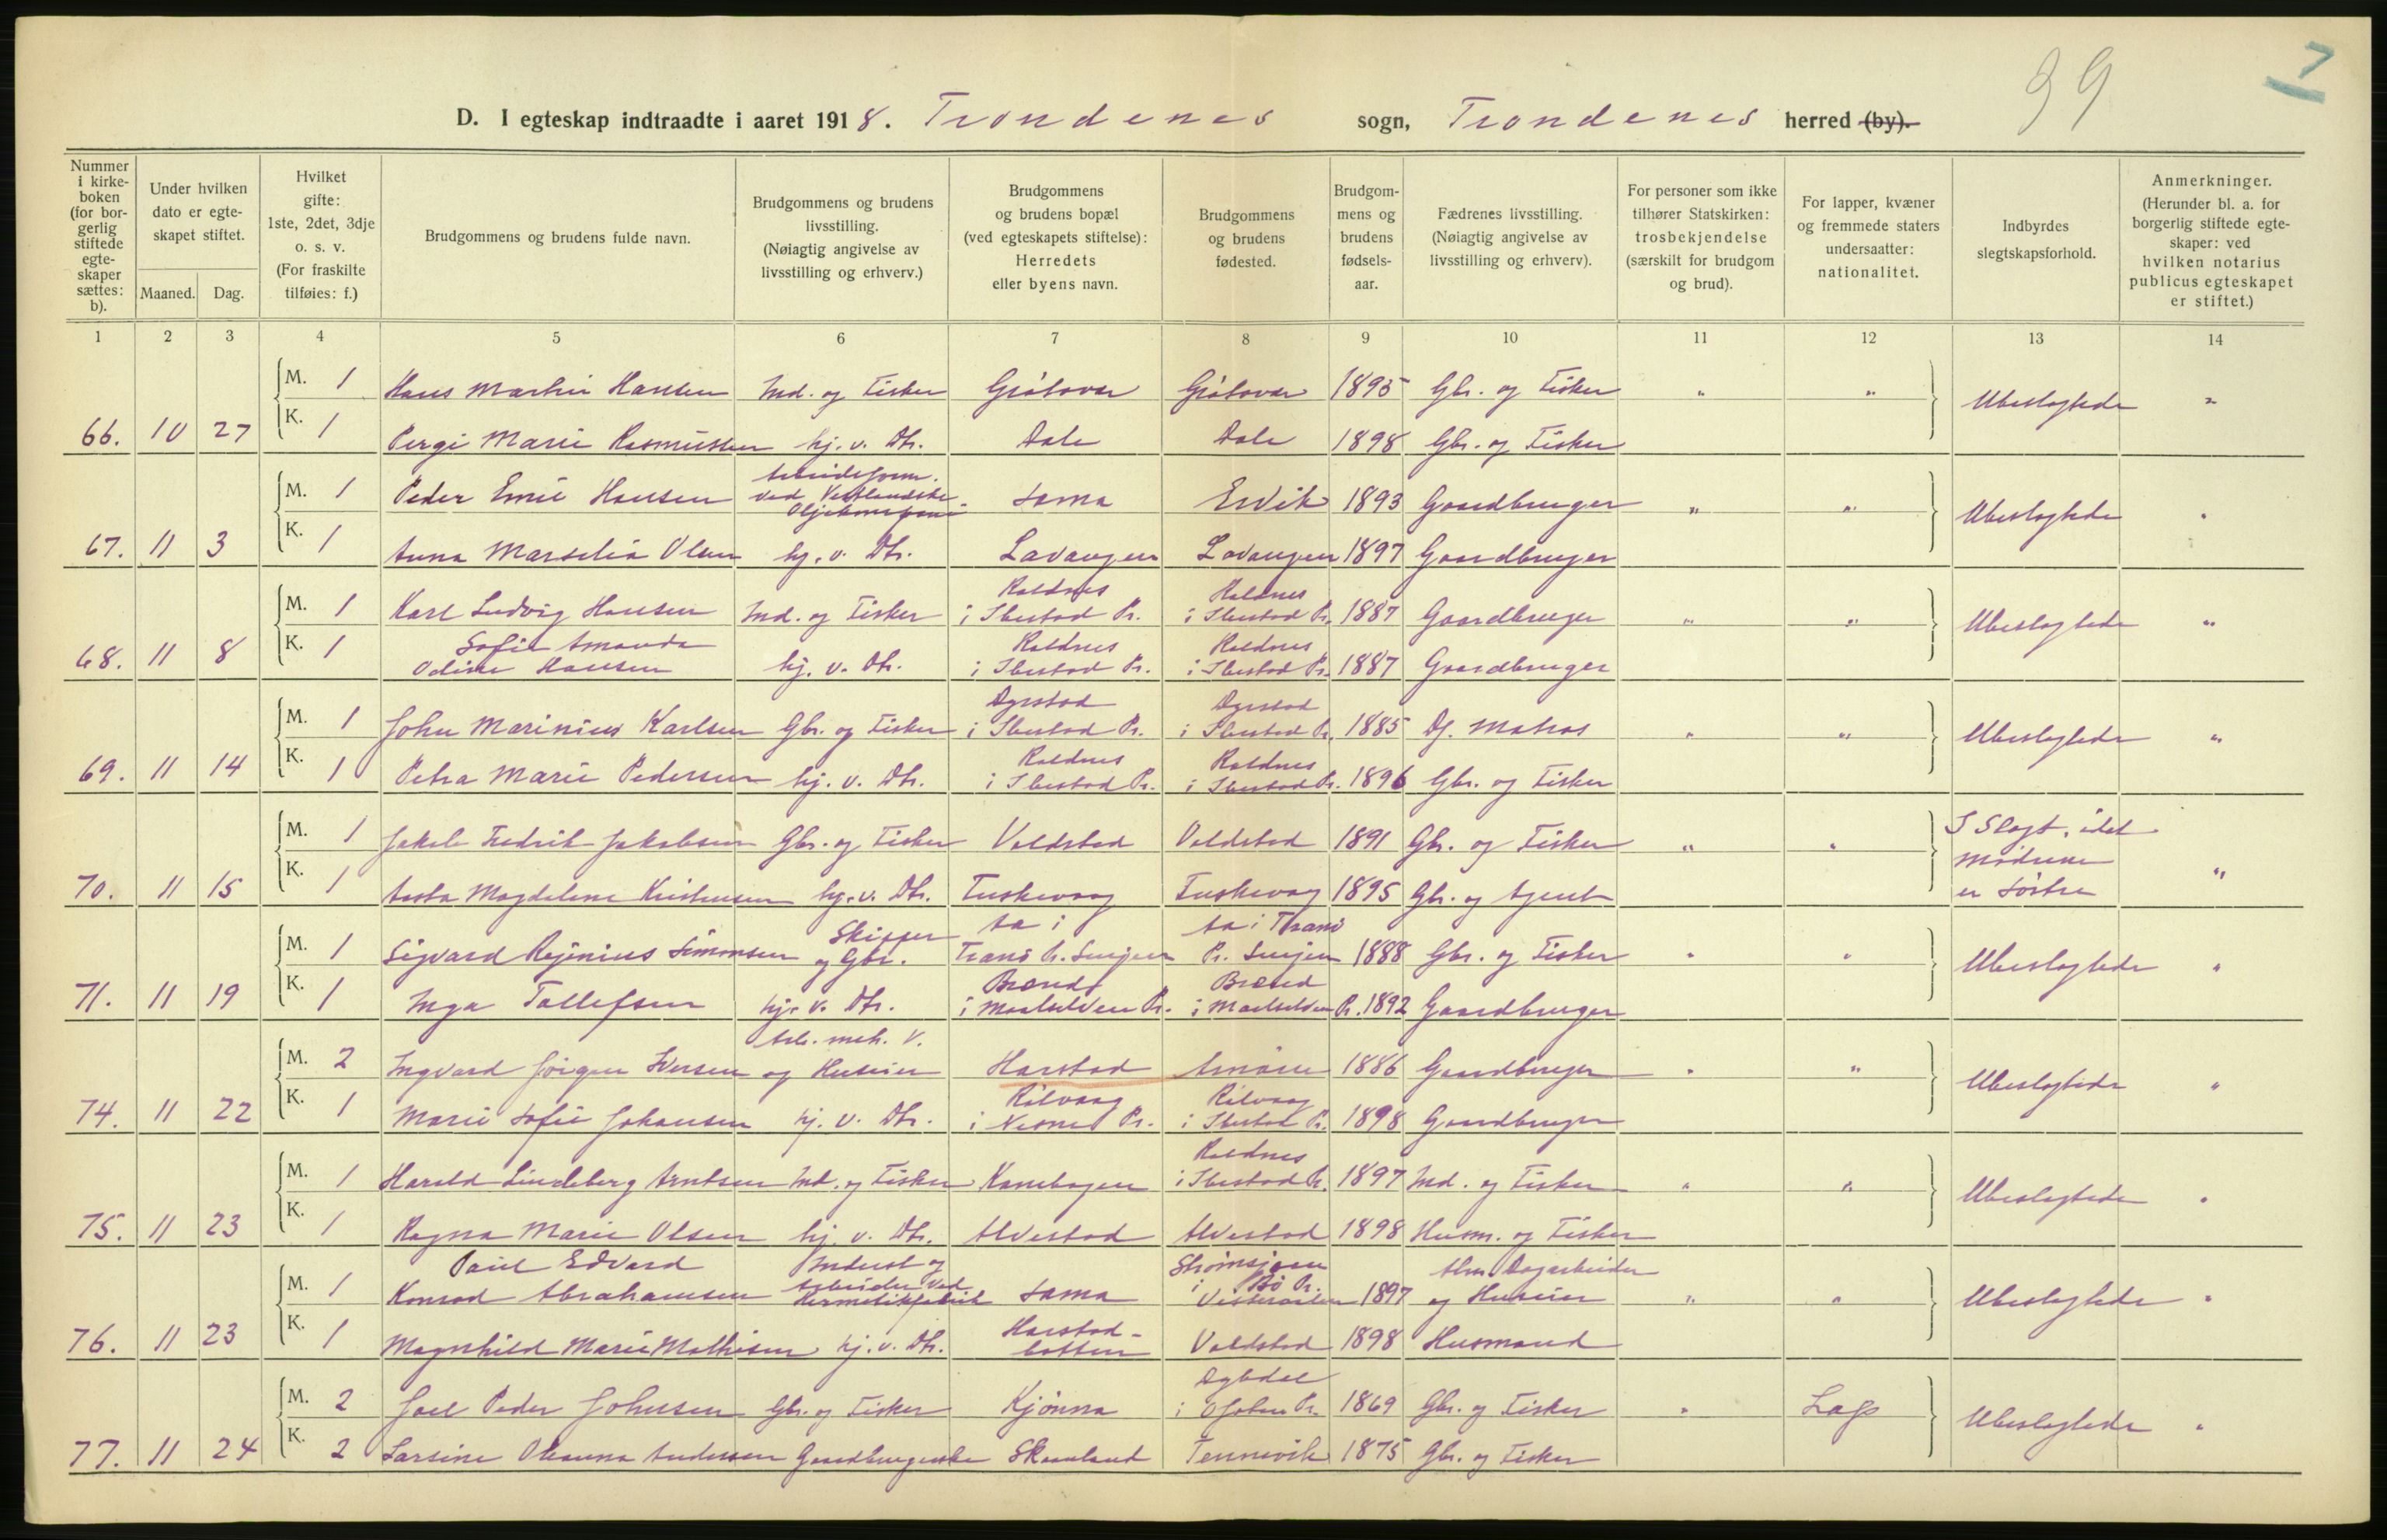 39
7
D. I egteskap indtraadte i aaret 1918. Trondenes sogn, Trondenes herred (by).
Nummer i kirkeboken (for borgerlig stiftede egteskaper sættes: b).
Under hvilken dato er egteskapet stiftet.
Maaned. Dag.
Hvilket gifte: 1ste, 2det, 3dje o. s. v. (For fraskilte tilføies: f.)
Brudgommens og brudens fulde navn.
Brudgommens og brudens livsstilling. (Nøiagtig angivelse av livsstilling og erhverv.)
Brudgommens og brudens bopæl (ved egteskapets stiftelse): Herredets eller byens navn.
Brudgommens og brudens fødested.
Brudgommens og brudens fødselsaar.
Fædrenes livsstilling. (Nøiagtig angivelse av livsstilling og erhverv).
For personer som ikke tilhører Statskirken: trosbekjendelse (særskilt for brudgom og brud).
For lapper, kvæner og fremmede staters undersaatter: nationalitet.
Indbyrdes slegtskapsforhold.
Anmerkninger. (Herunder bl. a. for borgerlig stiftede egteskaper: ved hvilken notarius publicus egteskapet er stiftet.)
1 2 3 4 5 6 7 8 9 10 11 12 13 14
M. 1 Hans Martin Hansen Ind. og Fisker Grøtavær Grøtavær 1895 Gbr. og Fisker " " Ubeslegtede "
66. 10 27 K. 1 Marie Rasmussen hj. v. Dtr. Dale Dale 1898 Gbr. og Fisker
M. 1 Peder Emil Hansen Arbeidsform. ved Vestlandske Oljekompani Sama Ervik 1893 Gaardbruger " " Ubeslegtede "
67. 11 3 K. 1 Anna Marselia Olsen hj. v. Dtr. Lavangen Lavangen 1897 Gaardbruger
M. 1 Karl Ludvig Hansen Ind. og Fisker Roldnes i Ibestad Pr. Roldnes i Ibestad Pr. 1887 Gaardbruger " " Ubeslegtede "
68. 11 8 K. 1 Sofie Amanda Odine Hansen hj. v. Dtr. Roldnes i Ibestad Pr. Roldnes i Ibestad Pr. 1887 Gaardbruger
M. 1 John Marinius Karlsen Gbr. og Fisker Dyrstad i Ibestad Pr. Dyrstad i Ibestad Pr. 1885 Df. Matros " " Ubeslegtede "
69. 11 14 K. 1 Petra Marie Pedersen hj. v. Dtr. Roldnes i Ibestad Pr. Roldnes i Ibestad Pr. 1896 Gbr. og Fisker
M. 1 Jakob Fredrik Jakobsen Gbr. og Fisker Voldstad Voldstad 1891 Gbr. og Fisker " " I Slegt, idet Mødrene er Søstre "
70. 11 15 K. 1 Magdalene Kristensen hj. v. Dtr. Fuskevaag Fuskevaag 1895 Gbr. og Agent
M. 1 Sigvard Rejinius Simonsen Skipper og Gbr. Aa i Tranø Pr. Senjen Aa i Tranø Pr. Senjen 1888 Gbr. og Fisker " " Ubeslegtede "
71. 11 19 K. 1 Inga Tollefsen hj. v. Dtr. Brænd i Maalselven Pr. Brænd i Maalselven Pr. 1892 Gaardbruger
M. 2 Ingvard Jørgen Iversen Arb. mek. V. og Huseier Harstad 1886 Gaardbruger " " Ubeslegtede "
74. 11 22 K. 1 Marie Sofie Johansen hj. v. Dtr. Rolvaag i Nesne Pr. Rolvaag i Ibestad Pr. 1898 Gaardbruger
M. 1 Harald Lindeberg Arntsen Ind. og Fisker Kanebogen Roldnes i Ibestad Pr. 1897 Ind. og Fisker " " Ubeslegtede "
75. 11 23 K. 1 Ragna Marie Olsen hj. v. Dtr. Alvestad Alvestad 1898 Husm. og Fisker
M. 1 Paul Edvard Konrad Abrahamsen Inderst og Arbeider ved Hermetikfabrik Sama Strømsjøen i Bø Pr. Vesteraalen 1897 Alm. Dagarbeider og Huseier " " Ubeslegtede "
76. 11 23 K. 1 Magnhild Marie Mathisen hj. v. Dtr. Harstadbotten Voldstad 1898 Husmand
M. 2 Joel Peder Johnsen Gbr. og Fisker Kjønna i Ofoten Pr. 1869 Gbr. og Fisker " Lap Ubeslegtede "
77. 11 24 K. 2 Larsine Oleanna Andersen Gaardbrugerske Skaanland Tennevik 1875 Gbr. og Fisker